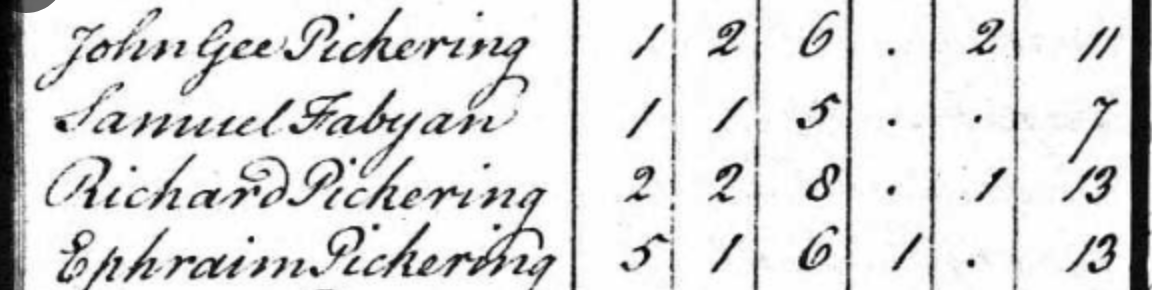 John Gee Pickering 1 2 6 . 2 11
Samuel Fabyan 1 1 5 . . 7
Richard Pickering 2 2 8 . 1 13
Ephraim Pickering 5 1 6 1 . 13